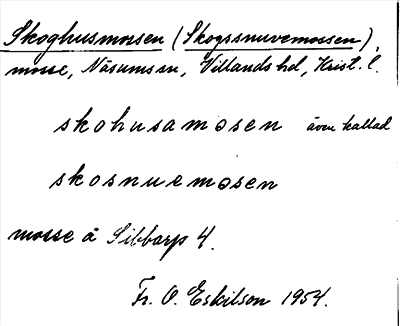 Skoghusmossen (Skogssnuvemossen),
mosse, Näsums sn, Villands hd, Krist. l.
skohusamosen även kallad
skosnuemosen
mosse å Sibbarp 4.
Fr. O. Eskilson 1954.